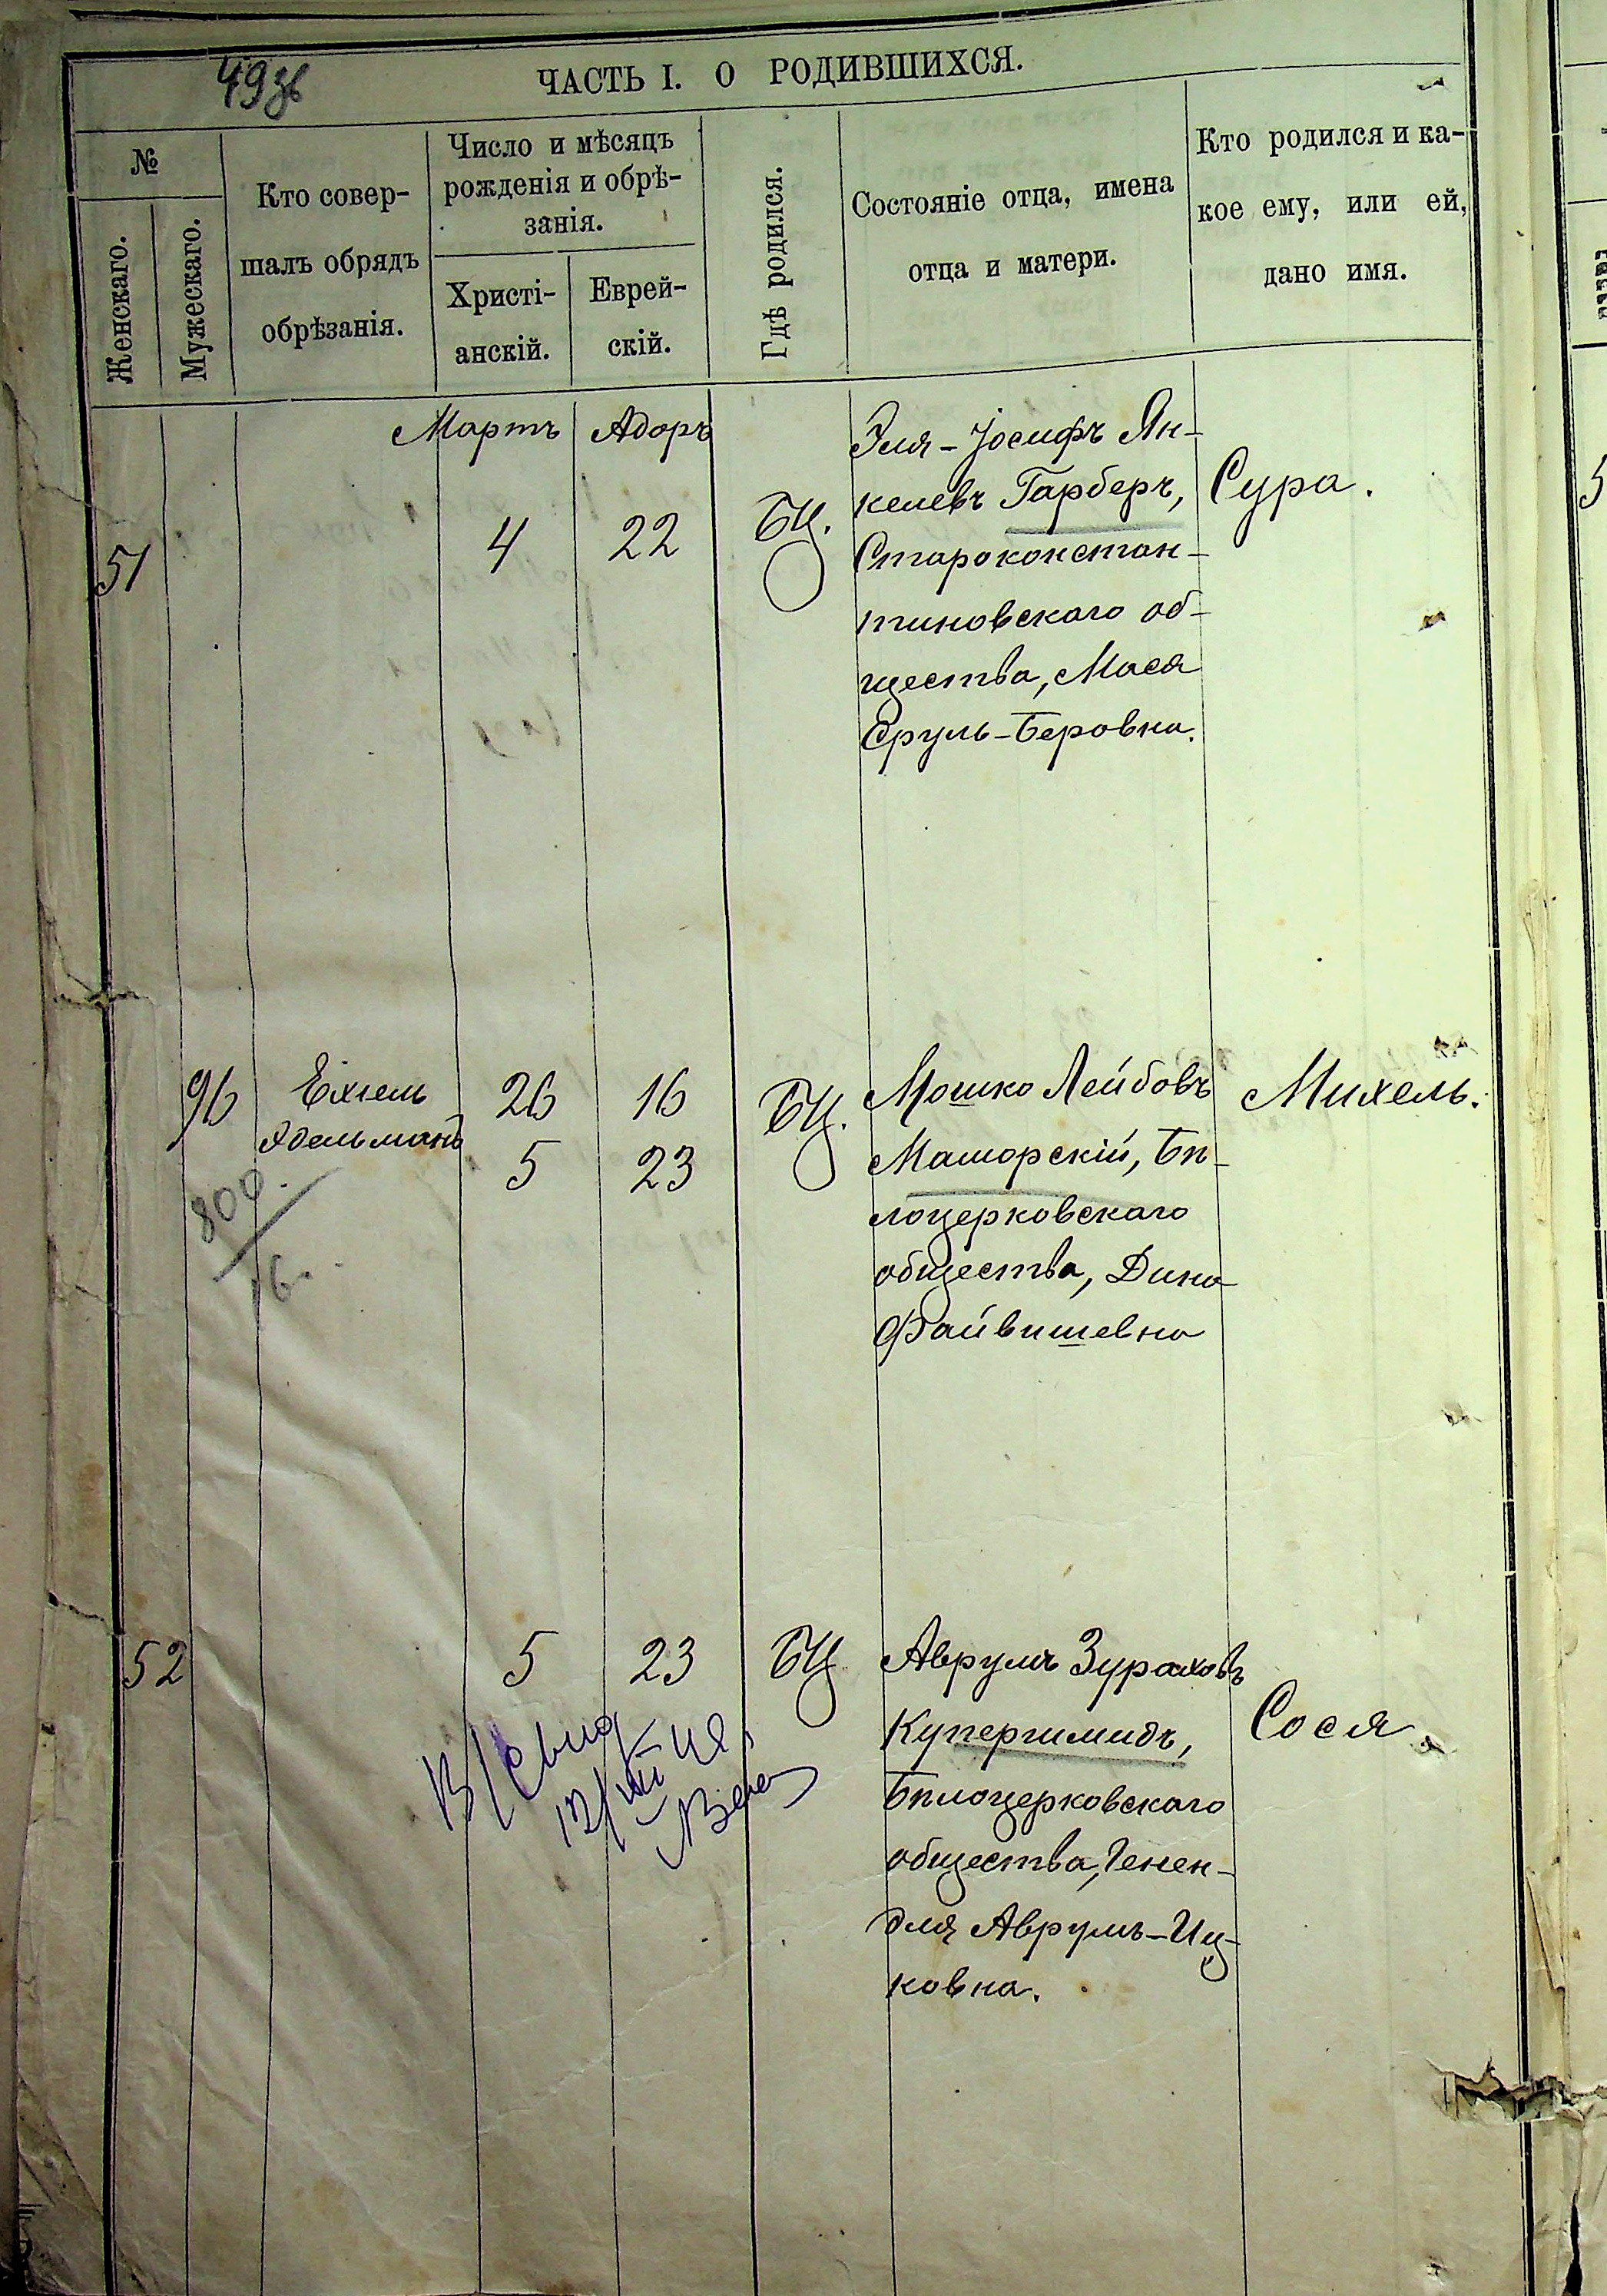 49зв
ЧАСТЬ I. О РОДИВШИХСЯ.
№
Женскаго.
Мужескаго.
Кто совер-
шалъ обрядъ
обрѣзанія.
Число и мѣсяцъ
рожденія и обрѣ-
занія.
Христі-
анскій.
Еврей-
скій.
Гдѣ родился.
Состояніе отца, имена
отца и матери.
Кто родился и ка-
кое ему, или ей,
дано имя.
Мартъ Адоръ
51 4 22 БЦ.
Эля-Іосифъ Ян-
келевъ Гарберъ,
Староконстан-
тиновскаго об-
щества, Мася
Сруль-Беровна.
Сура.
96 Ехіель
Эдельманъ
26 16
5 23
БЦ.
800.
16.
Мошко Лейбовъ
Маморскій, Бѣ-
лоцерковскаго
общества, Дина
Файвишевна
Михель.
52 5 23 БЦ
Аврумъ Зураховъ
Купершмидъ,
Бѣлоцерковскаго
общества, Генен-
для Аврумъ-Иц-
ковна.
Сося.